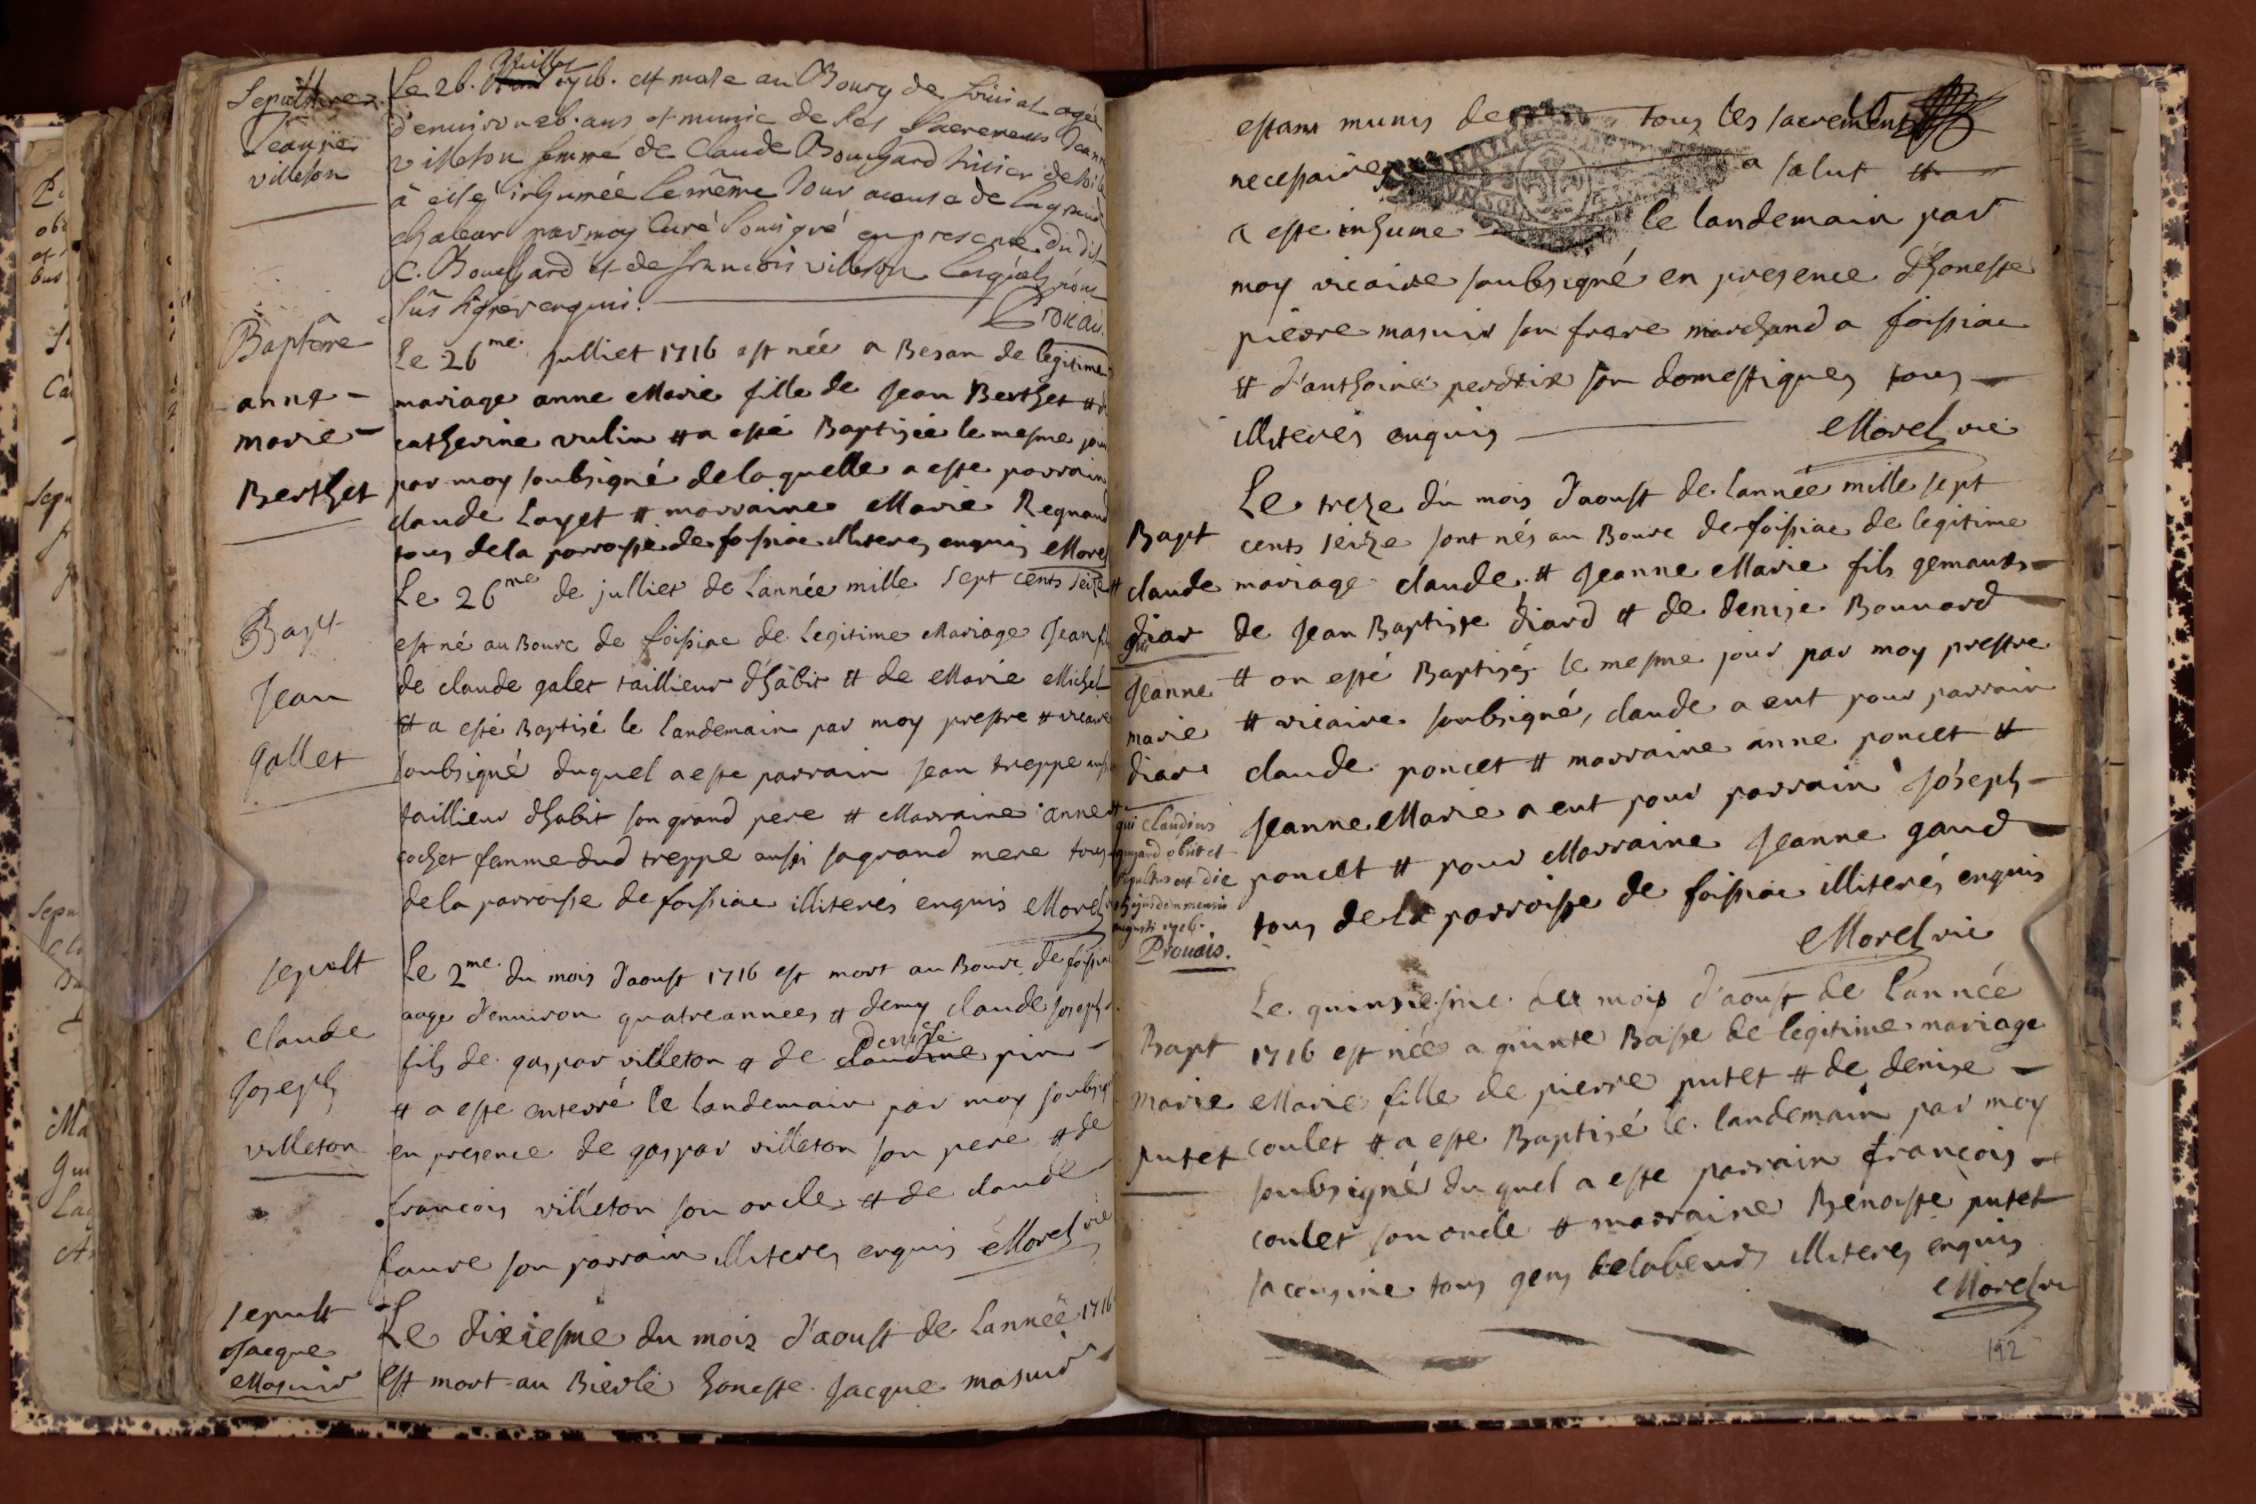 Sepulture
Jeanne
villeton
Le 26. Juillet 1716. est morte au Bourg de foissiat agée
d'environ 26. ans et munie de ses sacremens Jeanne
villeton femme de Claude Bouchard
à été inhumée le même Jour a cause de la grande
chaleur par moy Curé soussigné en presence du dit
C. Bouchard et de francois villeton lesquels n'ont
sûs signer enquis.
Bapteme
anne
marie
Berthet
Le 26me julliet 1716 est née a Besan de legitime
mariage anne Marie fille de Jean Berthet et de
catherine vulin et a esté Baptisée le mesme jour
par moy soubsigné de laquelle a este parrain
claude Layet et marraine Marie Regnaud
tous de la parroisse de foissiac illiteres enquis Morel
Bapt
Jean
gallet
Le 26me de julliet de Lannée mille sept cents seize
est né au Bourc de foissiac de Legitime Mariage Jean fils
de claude galet taillieur d'habit et de Marie Michel
et a esté Baptisé le landemain par moy prestre et vicaire
soubsigné duquel a este parrain jean treppe aussi
taillieur dhabit son grand pere et Marraine anne
cochet fanme dud treppe aussi sa grand mere tous
de la parroisse de foissiac illiterés enquis Morel
sepult
claude
joseph
villeton
Le 2me du mois d'aoust 1716 est mort au Bourc de foissiac
aage d'environ quatre annees et demy claude joseph
fils de gaspar villeton et de claudine denise pin
et a este enterré le landemain par moy soubsigné
en presence de gaspar villeton son pere et de
francois villeton son oncle et de claude
faure son parrain illiteres enquis Morel vic
sepult
Jacque
Masuir
Le dixiesme du mois d'aoust de Lannée 1716
est mort au Bierle honeste Jacque masuir
estant munis de tous les sacrements
necessaires a salut et
a este inhumé le landemain par
moy vicaire soubsigné en presence d'honeste
pierre masuir son frere marchand a foissiac
et d'anthoine perdrix son domestiques tous
illiterés enquis Morel vic
Bapt
claude
diar
Jeanne
marie
diar
qui Claudius
obiit et
sepultus est die
ejusdem mensis
augusti 1716.
Prouais.
Le treze du mois d'aoust de lannée mille sept
cents seize sont nés au Bourc de foissiac de legitime
mariage claude et Jeanne Marie fils gemaux
de Jean Baptiste diard et de denise Bouvard
et on esté Baptisés le mesme jour par moy prestre
et vicaire soubsigné, claude a eut pour parrain
claude poncet et marraine anne poncet et
Jeanne Marie a eut pour parrain joseph
poncet et pour Marraine Jeanne gaud
tous de la parroisse de foissiac illiterés enquis
Morel vic
Bapt
marie
putet
Le quinsiesme du mois d'aoust de Lannée
1716 est née a quinte Basse de legitime mariage
Marie fille de pierre putet et de denise
coulet et a este Baptisé le landemain par moy
soubsigné du quel a este parrain francois
coulet son oncle et marraine Benoiste putet
sa cousine tous gens de labeurs illiteres enquis
Morel vic
192